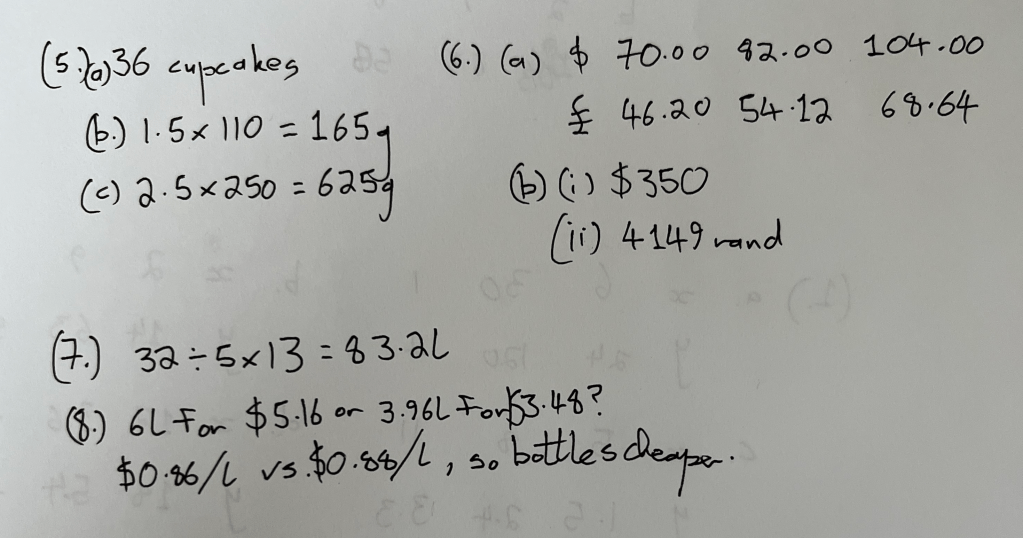 (5.)(a) 36 cupcakes
(b.) 1.5 × 110 = 165g
(c) 2.5 × 250 = 625g
(6.) (a) $ 70.00 82.00 104.00
£ 46.20 54.12 68.64
(b) (i) $350
(ii) 4149 rand
(7.) 32 ÷ 5 × 13 = 83.2L
(8.) 6L For $5.16 or 3.96L For $3.48?
$0.86/L vs. $0.88/L, so bottles cheaper.